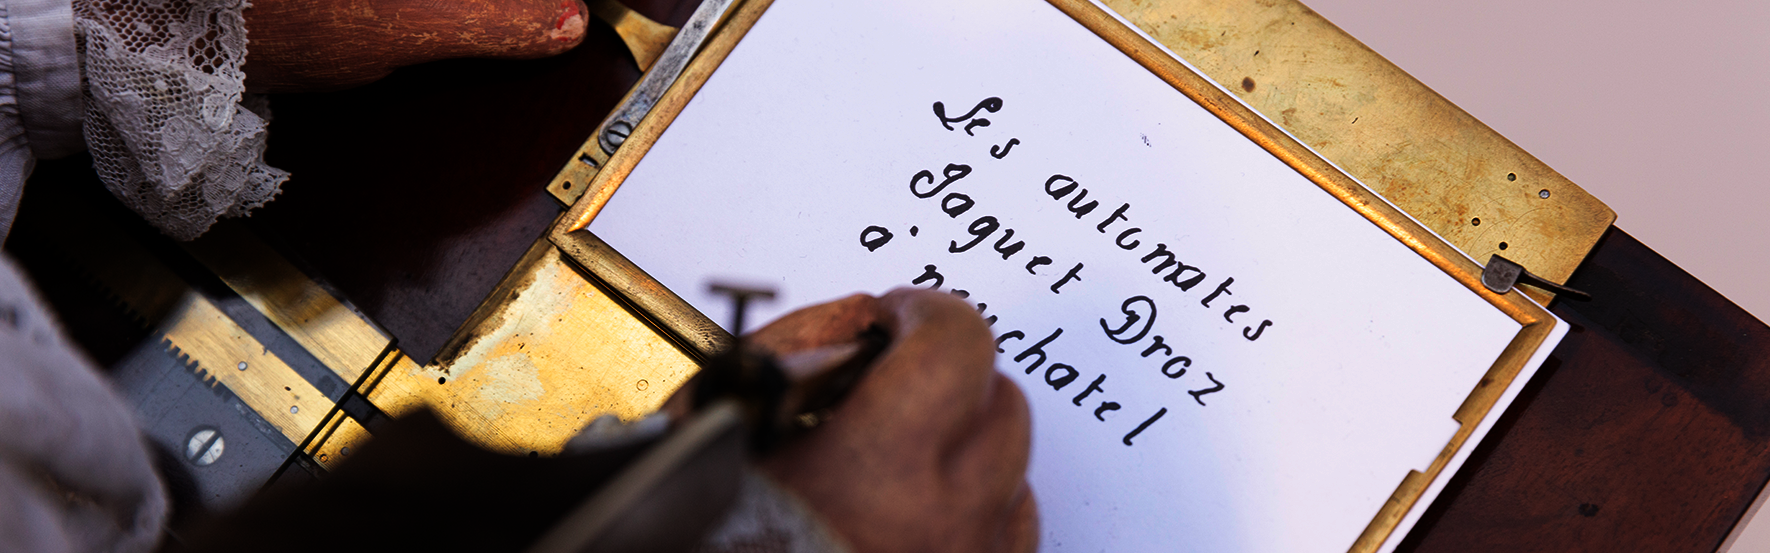 Les automates
Jaquet Droz
à neuchatel